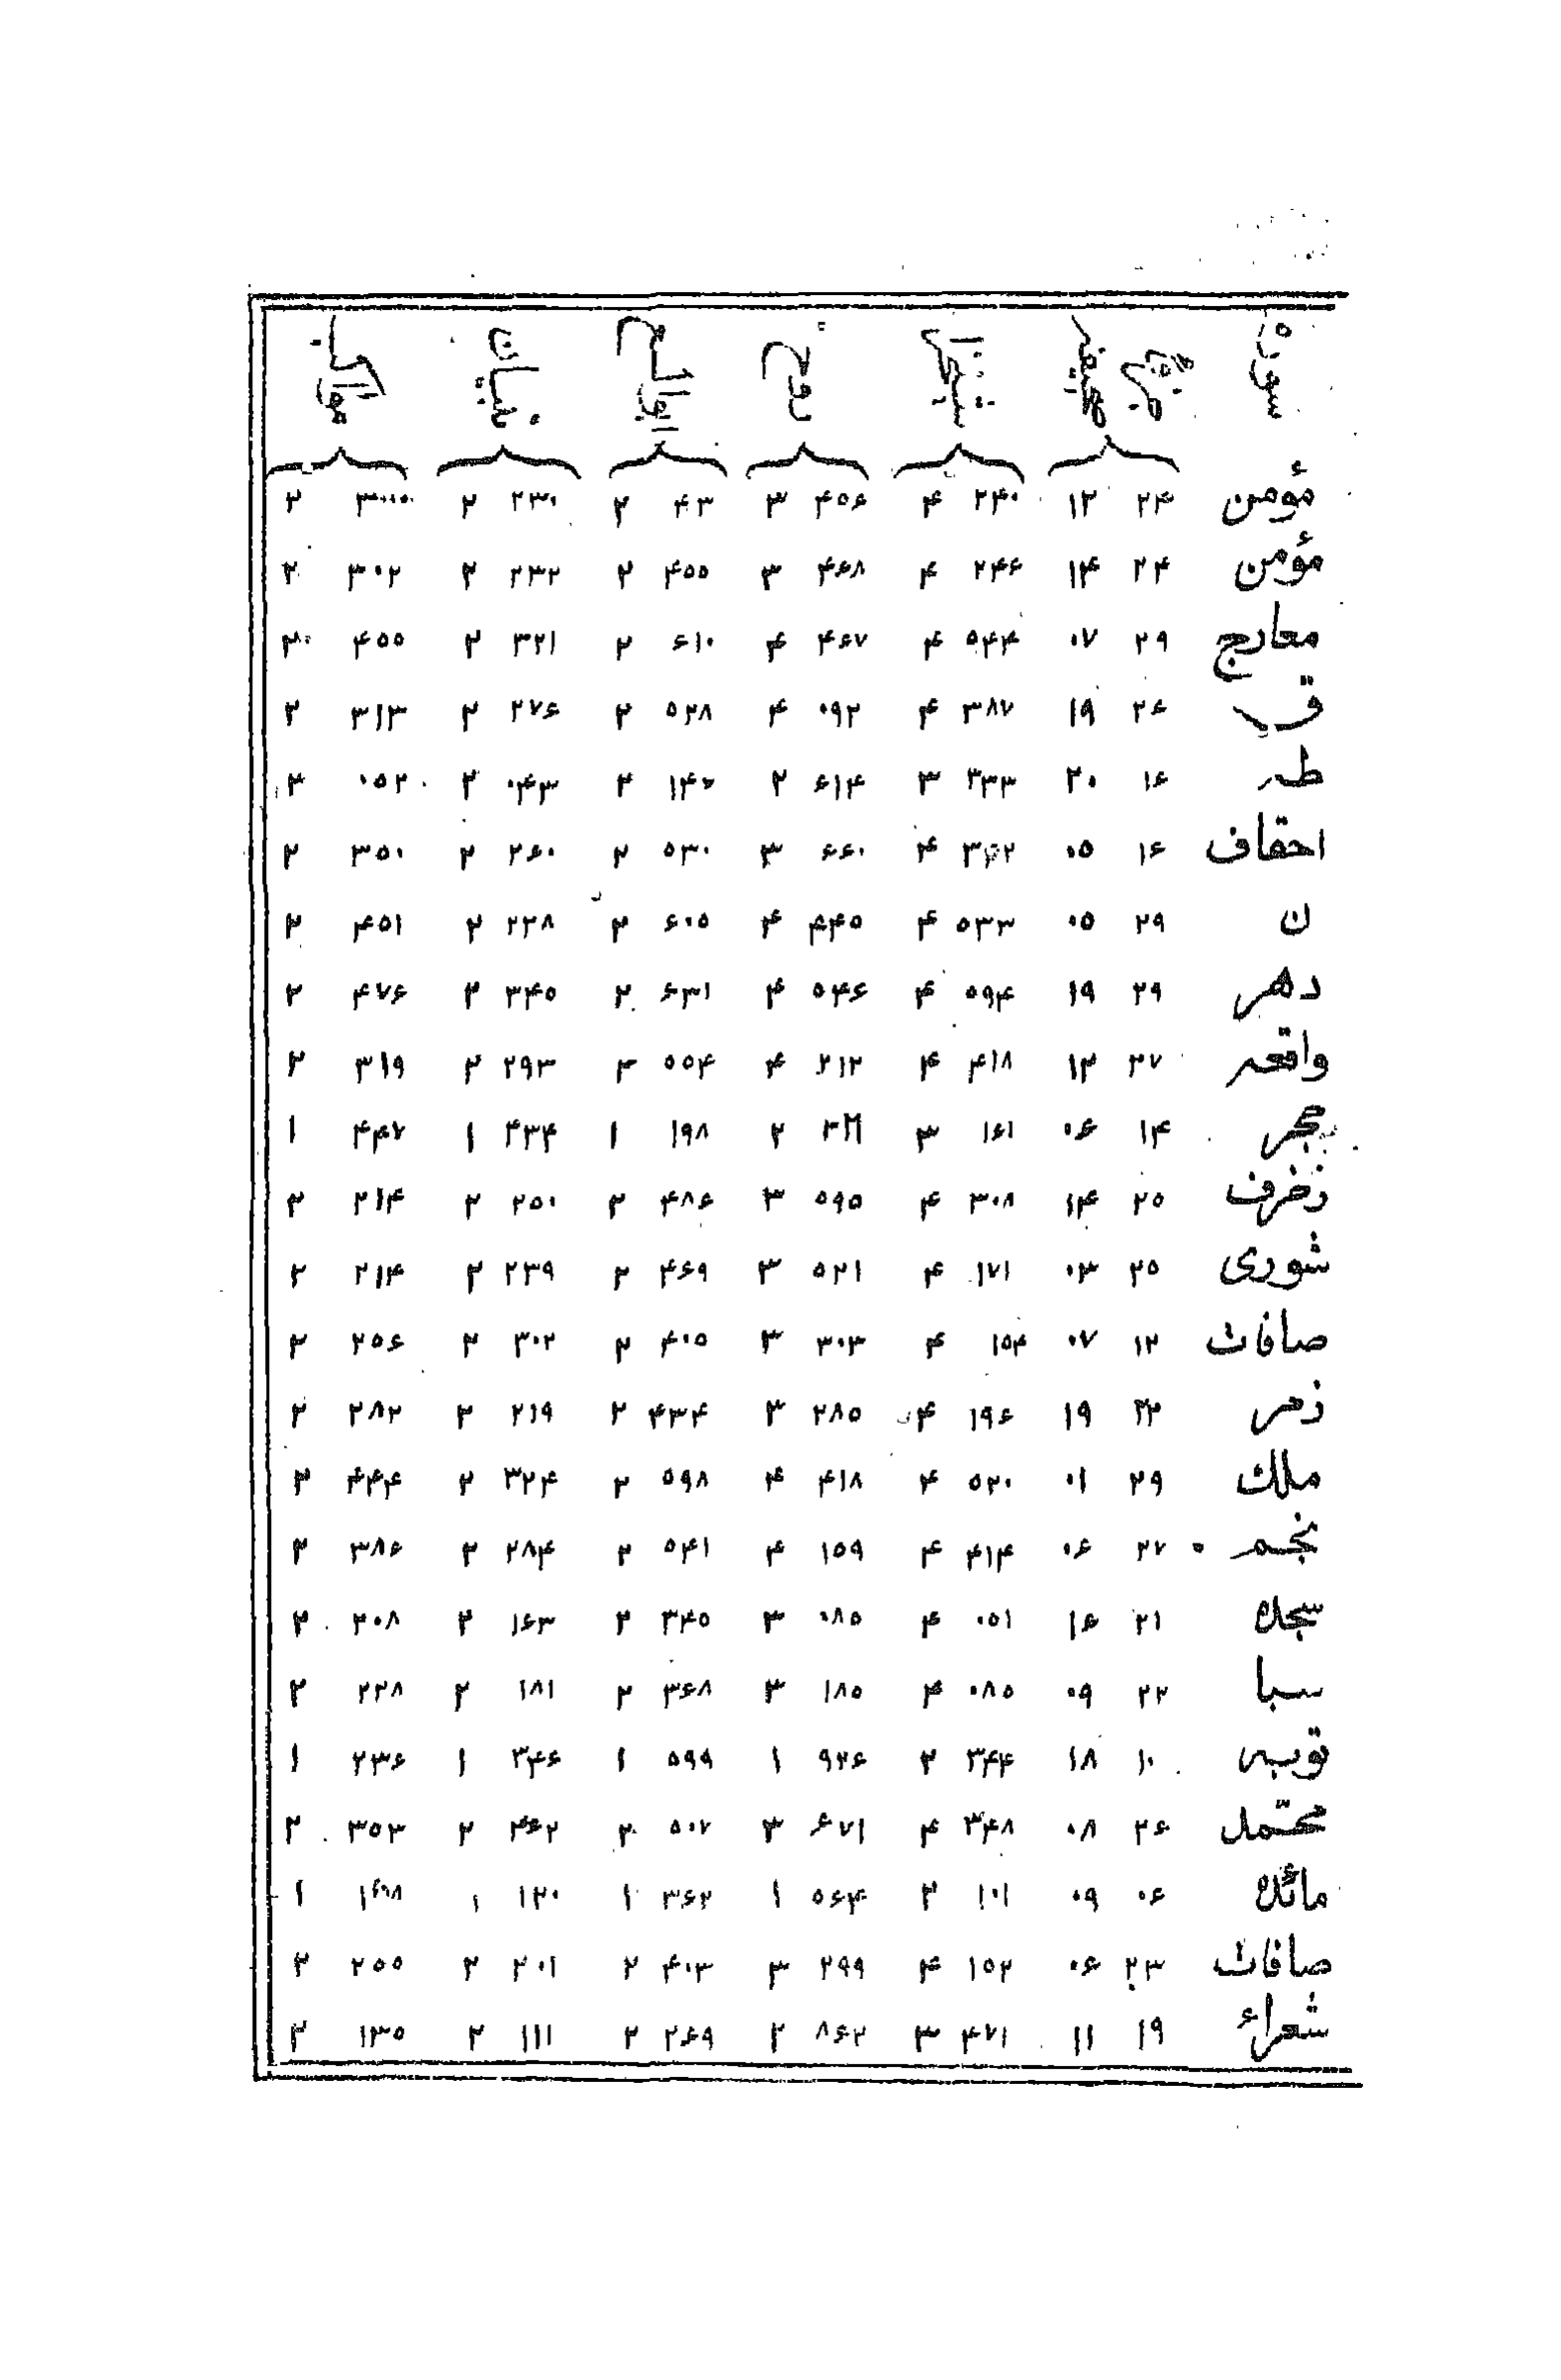 سوره جزء صفحه روح
مؤمن ۲۴ ۱۳ ۲۴۰ ۴ ۴۵۶ ۳ ۴۳ ۲ ۲۳۰ ۲ ۲
مؤمن ۲۴ ۱۴ ۲۴۶ ۴ ۴۶۸ ۳ ۴۵۵ ۲ ۲۳۲ ۲ ۳۰۲ ۲
معارج ۲۹ ۰۷ ۵۴۴ ۴ ۴۶۷ ۴ ۶۱۰ ۲ ۳۲۱ ۲ ۴۵۵
ق ۲۶ ۱۹ ۳۸۷ ۴ ۰۹۲ ۴ ۵۲۸ ۲ ۲۷۶ ۲ ۳۱۳ ۲
طه ۱۶ ۲۰ ۳۳۳ ۳ ۶۱۴ ۲ ۲ ۰۴۳ ۲ ۰۵۲ ۲
احقاف ۱۶ ۰۵ ۳۶۲ ۴ ۶۶۰ ۳ ۵۳۰ ۲ ۲۶۰ ۲ ۳۵۰ ۲
ن ۲۹ ۰۵ ۵۳۳ ۴ ۴۴۵ ۴ ۶۰۵ ۲ ۲۳۸ ۲ ۴۵۱ ۲
دهر ۲۹ ۱۹ ۵۹۴ ۴ ۵۴۶ ۴ ۶۳۱ ۲ ۳۴۵ ۲ ۴۷۶ ۲
واقعه ۲۷ ۱۳ ۴۱۸ ۴ ۲۱۲ ۴ ۵۵۴ ۲ ۲۹۳ ۲ ۳۱۹ ۲
حجر ۱۴ ۰۶ ۱۶۱ ۳ ۲ ۱۹۸ ۱ ۴۳۴ ۱ ۴۴۷ ۱
زخرف ۲۵ ۱۴ ۳۰۸ ۴ ۵۹۵ ۳ ۴۸۶ ۲ ۲۵۰ ۲ ۲۱۴ ۲
شوری ۲۵ ۰۳ ۱۷۱ ۴ ۵۲۱ ۳ ۴۶۹ ۲ ۲۳۹ ۲ ۲۱۴ ۲
صافات ۱۲ ۰۷ ۱۵۴ ۴ ۳۰۳ ۳ ۴۰۵ ۲ ۳۰۲ ۲ ۲۵۶ ۲
زمر ۱۹ ۱۹۶ ۴ ۲۸۵ ۳ ۴۳۴ ۲ ۲۱۹ ۲ ۲۸۲ ۲
ملك ۲۹ ۰۱ ۵۲۰ ۴ ۴۱۸ ۴ ۵۹۸ ۲ ۳۲۴ ۲ ۴۴۴ ۲
نجم ۲۷ ۰۶ ۴۱۴ ۴ ۱۵۹ ۴ ۵۴۱ ۲ ۲۸۴ ۲ ۳۸۶ ۲
سجده ۲۱ ۱۶ ۰۵۱ ۴ ۰۸۵ ۳ ۳۴۵ ۲ ۱۶۳ ۲ ۲۰۸ ۲
سبا ۲۲ ۰۹ ۰۸۵ ۴ ۱۸۵ ۳ ۳۶۸ ۲ ۱۸۱ ۲ ۲۲۸ ۲
توبه ۱۰ ۱۸ ۳۴۴ ۲ ۹۲۶ ۱ ۵۹۹ ۱ ۳۴۶ ۱ ۲۳۶ ۱
محمّد ۲۶ ۰۸ ۳۴۸ ۴ ۶۷۱ ۳ ۵۰۷ ۲ ۴۶۲ ۲ ۳۵۳ ۲
مائده ۰۶ ۰۹ ۱۰۱ ۲ ۵۶۴ ۱ ۳۶۲ ۱ ۱۲۰ ۱ ۱
صافات ۲۳ ۰۶ ۱۵۲ ۴ ۲۹۹ ۳ ۴۰۳ ۲ ۲۰۱ ۲ ۲۵۵ ۲
شعراء ۱۹ ۱۱ ۴۷۱ ۳ ۸۶۲ ۲ ۲۶۹ ۲ ۱۱۱ ۲ ۱۳۵ ۲